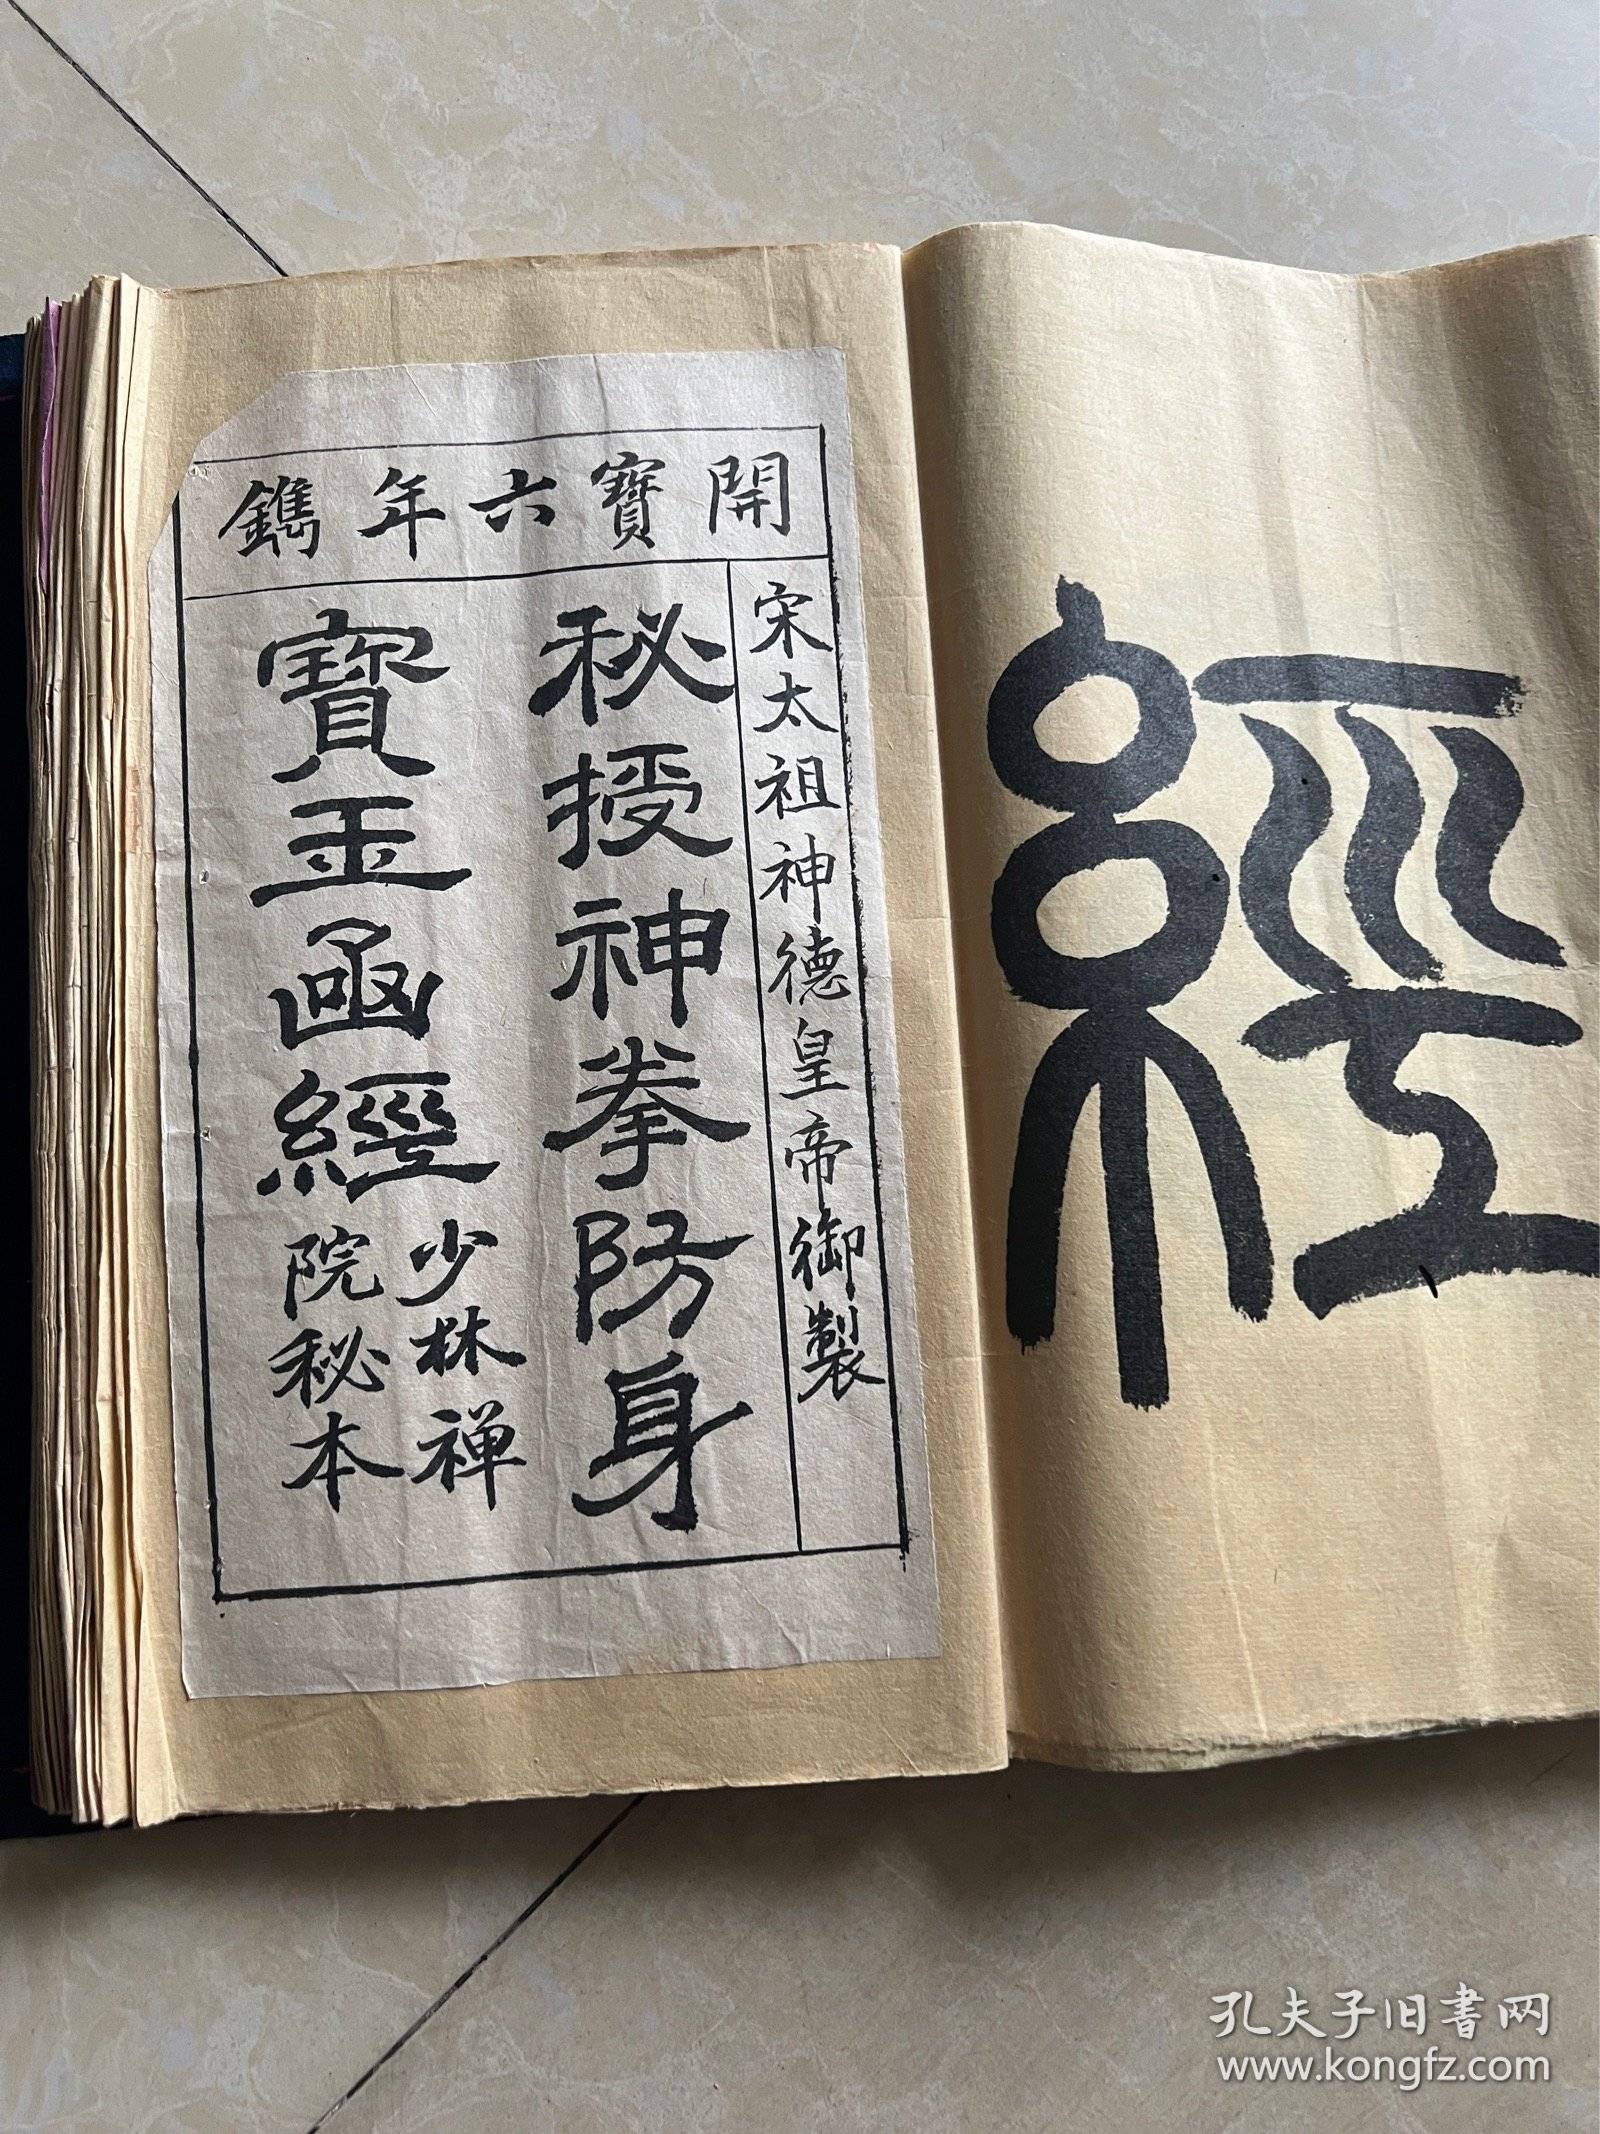 經
開寶六年鐫
宋太祖神德皇帝御製
秘授神拳防身
寶玉函經
少林禅
院秘本
孔夫子旧書网
www.kongfz.com